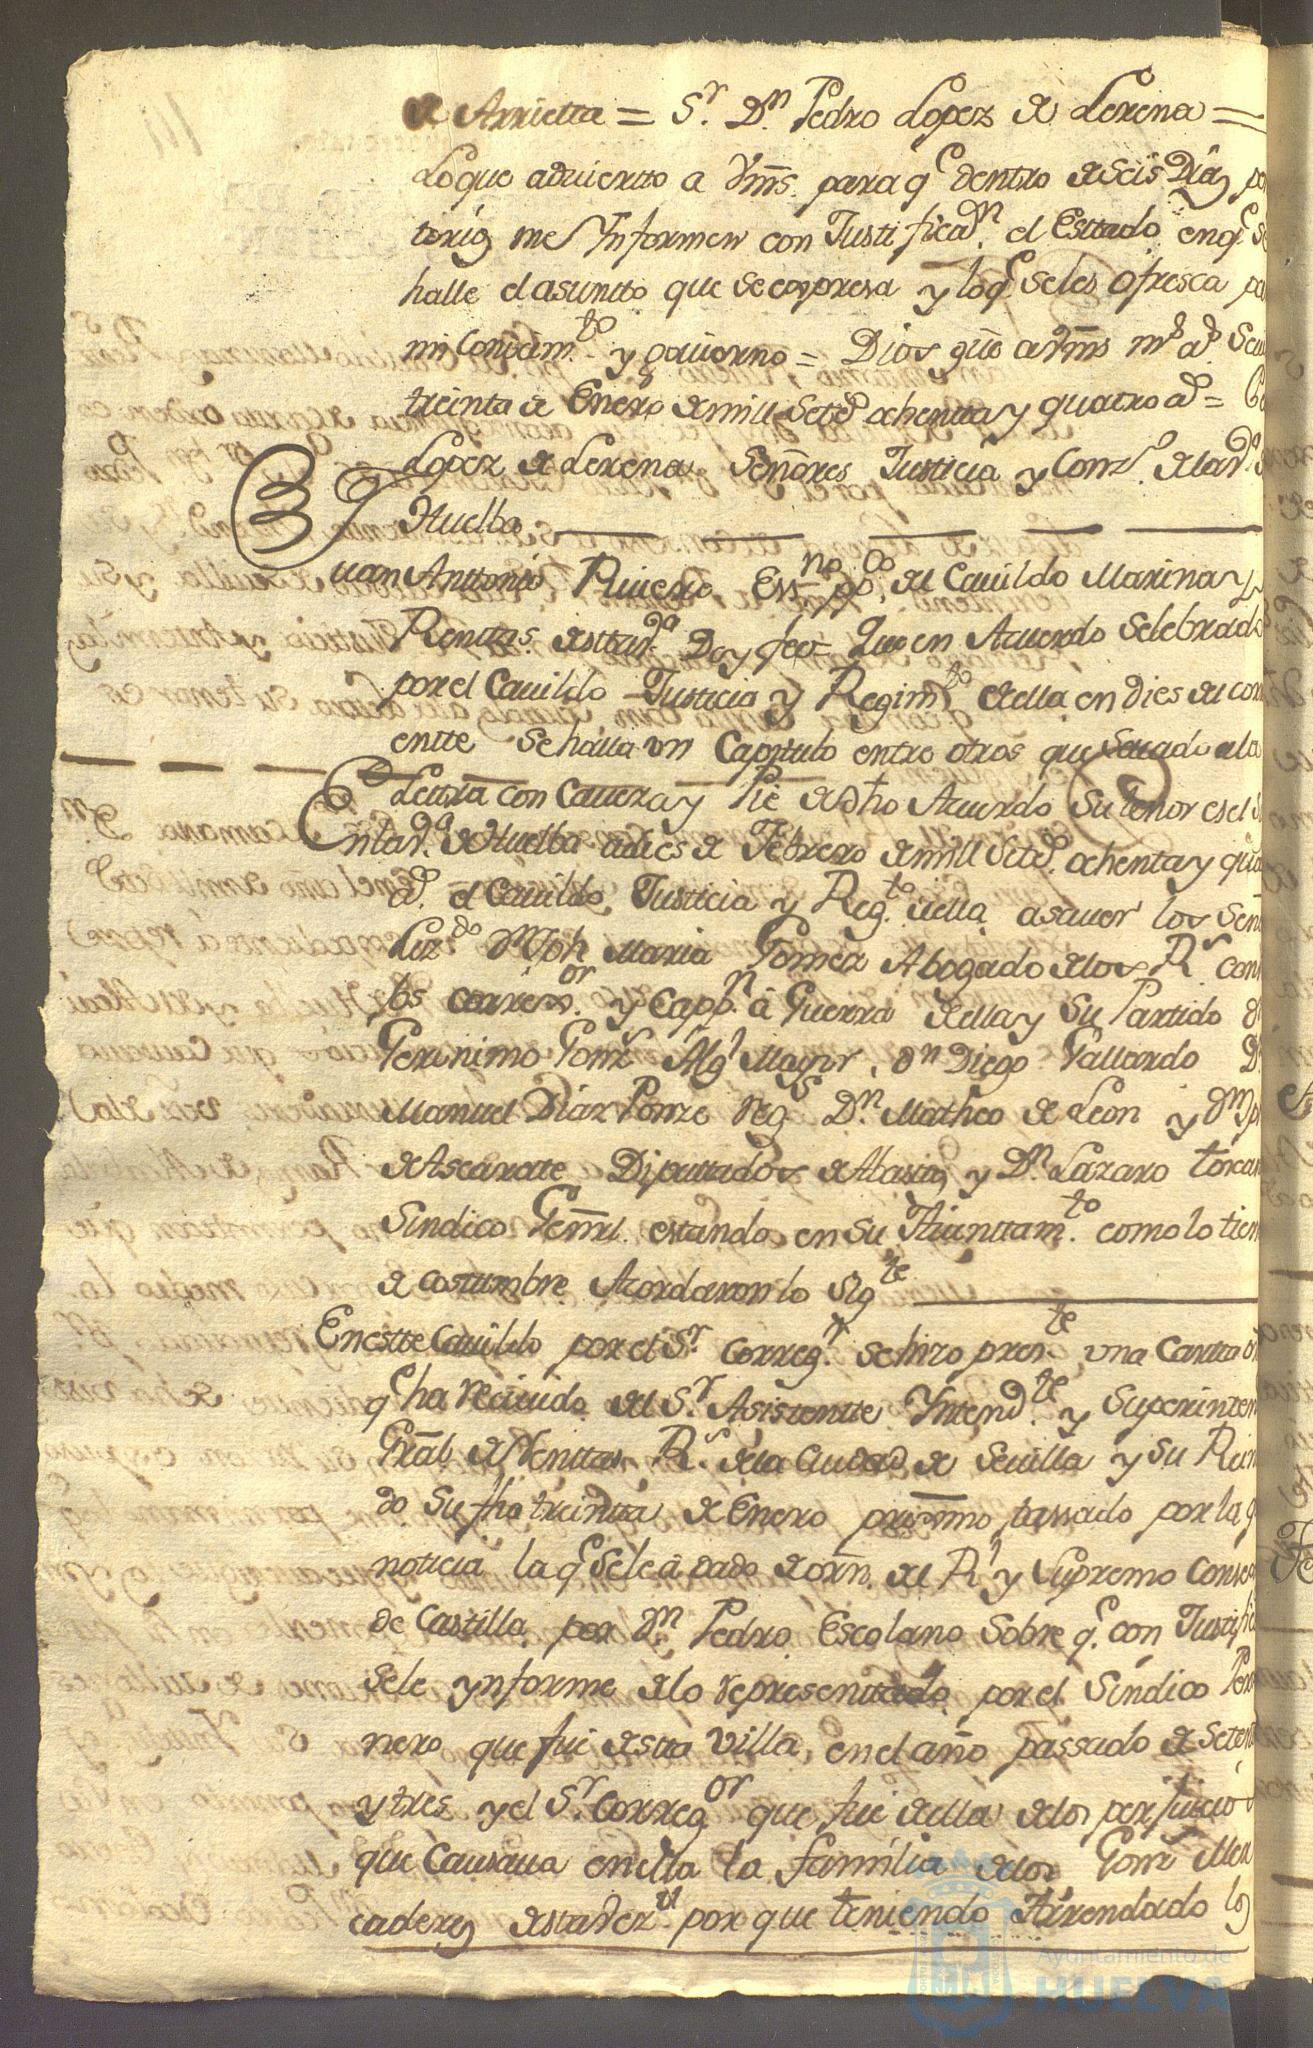 de Arrietta = S.r D.n Pedro Lopez de Lerena =
Loque advierto a Vms. para q.e dentro de seis Dias pe
torios me Ynformen con Justificaz.n el Esttado enq.e se
halle el asuntto que se expresa y loq.e seles ofresca pa
mi Conocim.to y govierno = Dios gue a Vms m.s a.s Sevi
treinta de Enero de mill Setez.s ochenta y quatro a.s = Pe
Lopez de Lerena Señores Justicia y Conz.o dela v.a de
Huelba
Juan Anttonio Riverio Ess.no pp.co del Cavildo Marina y
Renttas destta v.a Doy fee = Que en Acuerdo Selebrado
por el Cavildo Justicia y Regim.to de ella en dies del cori
entte Se halla vn Capitulo entre otros que Sacado ala
Lettra con Caveza y Pie de dho Acuerdo Su tenor es el
Enla v.a de Huelba adies de Febrero de mill Setez.s ochenta y qua
a.s el Cavildo Justicia y Reg.to de ella asaver los Señ
Liz.do D.n Joh Maria Gomez Abogado delos R.s Con
Correxi.or y Capp.n â Guerra de ella y Su Partido
Geronimo Gonz Alg.l Mayor, D.n Diego Gallardo D.
Manuel Diaz Ponze reg.s D.n Matheo de Leon y
de Ascarate Diputtados de Abastos y D.n Lazaro
Sindico Genrl. estando en Su Aiunttam.to como lo tien
de costumbre Acordaron lo Sig.te
En estte Cavildo por el S.r Correg.r se hizo pres.te una Cartta
q.e ha recivido del S.r Asistentte Yntend.te y Superinten
Gral de Renttas R.s dela Ciudad de Sevilla y su Rein
do Su fha treintta de Enero proximo passado por la q
noticia la q.e sele â dado de orn. del R.l y Supremo Conse
de Castilla por D.n Pedro Escolano Sobre q.e con Justifi
sele ynforme delo representtado por el Sindico Per
nero que fue destta Villa, en el año passado de Seten
y tres y el S.r Correg.or que fue de ella delos perjuicio
que Causava en ella la familia delos Gonz Mer
caderes desta vez.d por que teniendo Arrendado los
Ayuntamiento de
HUELVA